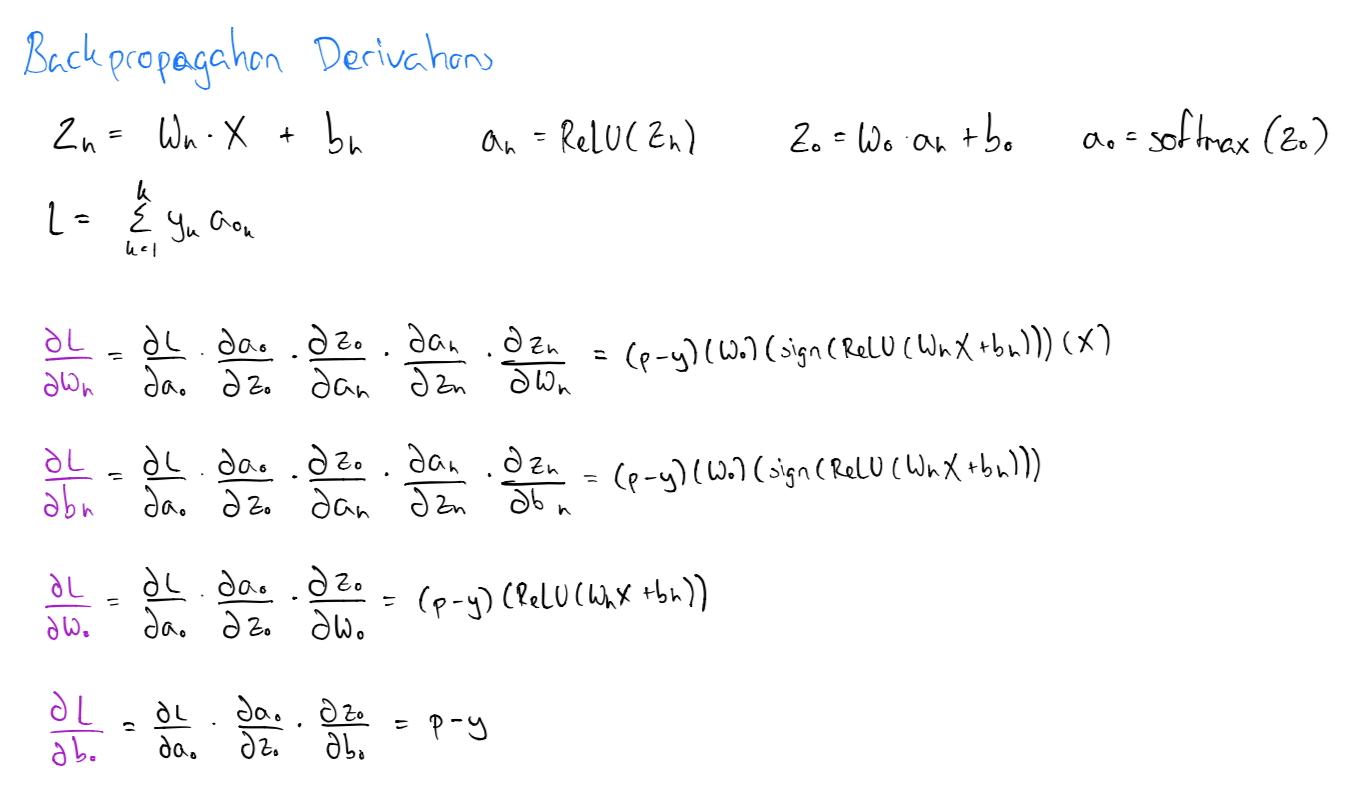 Backpropagation Derivations
Zₕ = Wₕ · X + bₕ    aₕ = ReLU(Zₕ)    Z₀ = W₀ · aₕ + b₀    a₀ = softmax(Z₀)
L = Σ_{k=1}^{k} yₖ a₀ₖ
∂L/∂Wₕ = ∂L/∂a₀ · ∂a₀/∂Z₀ · ∂Z₀/∂aₕ · ∂aₕ/∂Zₕ · ∂Zₕ/∂Wₕ = (p-y)(W₀)(sign(ReLU(WₕX+bₕ)))(X)
∂L/∂bₕ = ∂L/∂a₀ · ∂a₀/∂Z₀ · ∂Z₀/∂aₕ · ∂aₕ/∂Zₕ · ∂Zₕ/∂bₕ = (p-y)(W₀)(sign(ReLU(WₕX+bₕ)))
∂L/∂W₀ = ∂L/∂a₀ · ∂a₀/∂Z₀ · ∂Z₀/∂W₀ = (p-y)(ReLU(WₕX+bₕ))
∂L/∂b₀ = ∂L/∂a₀ · ∂a₀/∂Z₀ · ∂Z₀/∂b₀ = p-y